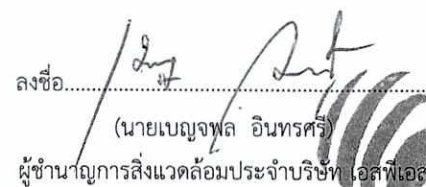 ลงชื่อ...........................................................
(นายเบญจพล อินทรศรี)
ผู้ชำนาญการสิ่งแวดล้อมประจำบริษัท เอสพีเอส